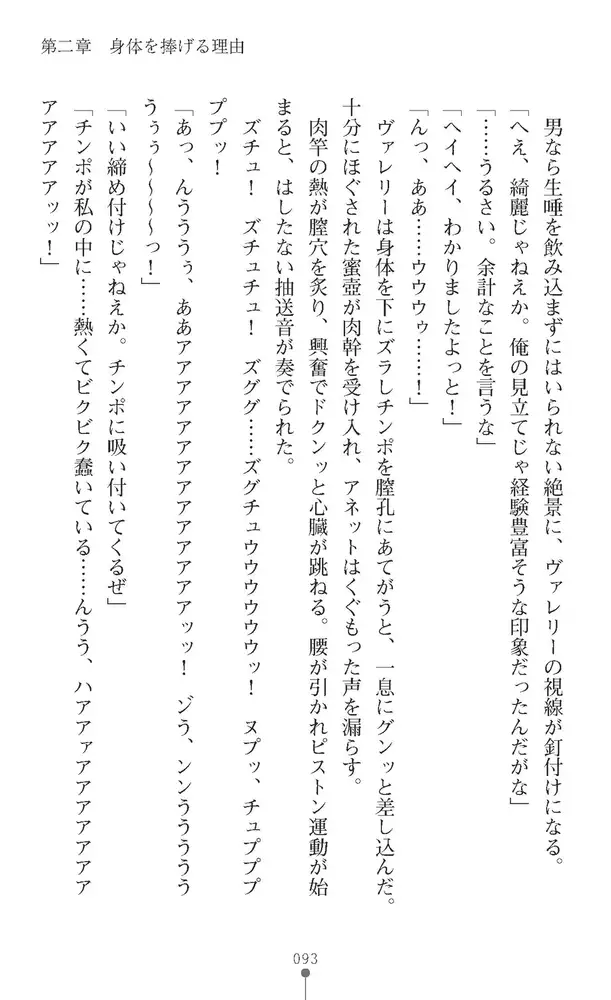 第二章　身体を捧げる理由
男なら生唾を飲み込まずにはいられない絶景に、ヴァレリーの視線が釘付けになる。
「へえ、綺麗じゃねえか。俺の見立てじゃ経験豊富そうな印象だったんだがな」
「……うるさい。余計なことを言うな」
「ヘイヘイ、わかりましたよっと！」
「んっ、ああ……ウウウゥ……！」
ヴァレリーは身体を下にズラしチンポを膣孔にあてがうと、一息にグンッと差し込んだ。
十分にほぐされた蜜壺が肉幹を受け入れ、アネットはくぐもった声を漏らす。
肉竿の熱が膣穴を炙り、興奮でドクンッと心臓が跳ねる。腰が引かれピストン運動が始
まると、はしたない抽送音が奏でられた。
ズチュ！　ズチュチュ！　ズググ……ズグチュウウウウウッ！　ヌプッ、チュププププ
ププッ！
「あっ、んうううぅ、ああアアアアアアアアアアアアアアッッ！　ゾう、ンンううううう
うぅぅ〜〜〜〜っ！」
「いい締め付けじゃねえか。チンポに吸い付いてくるぜ」
「チンポが私の中に……熱くてビクビク蠢いている……んうう、ハアアァアアアアアアア
アアアアアッッ！」
093